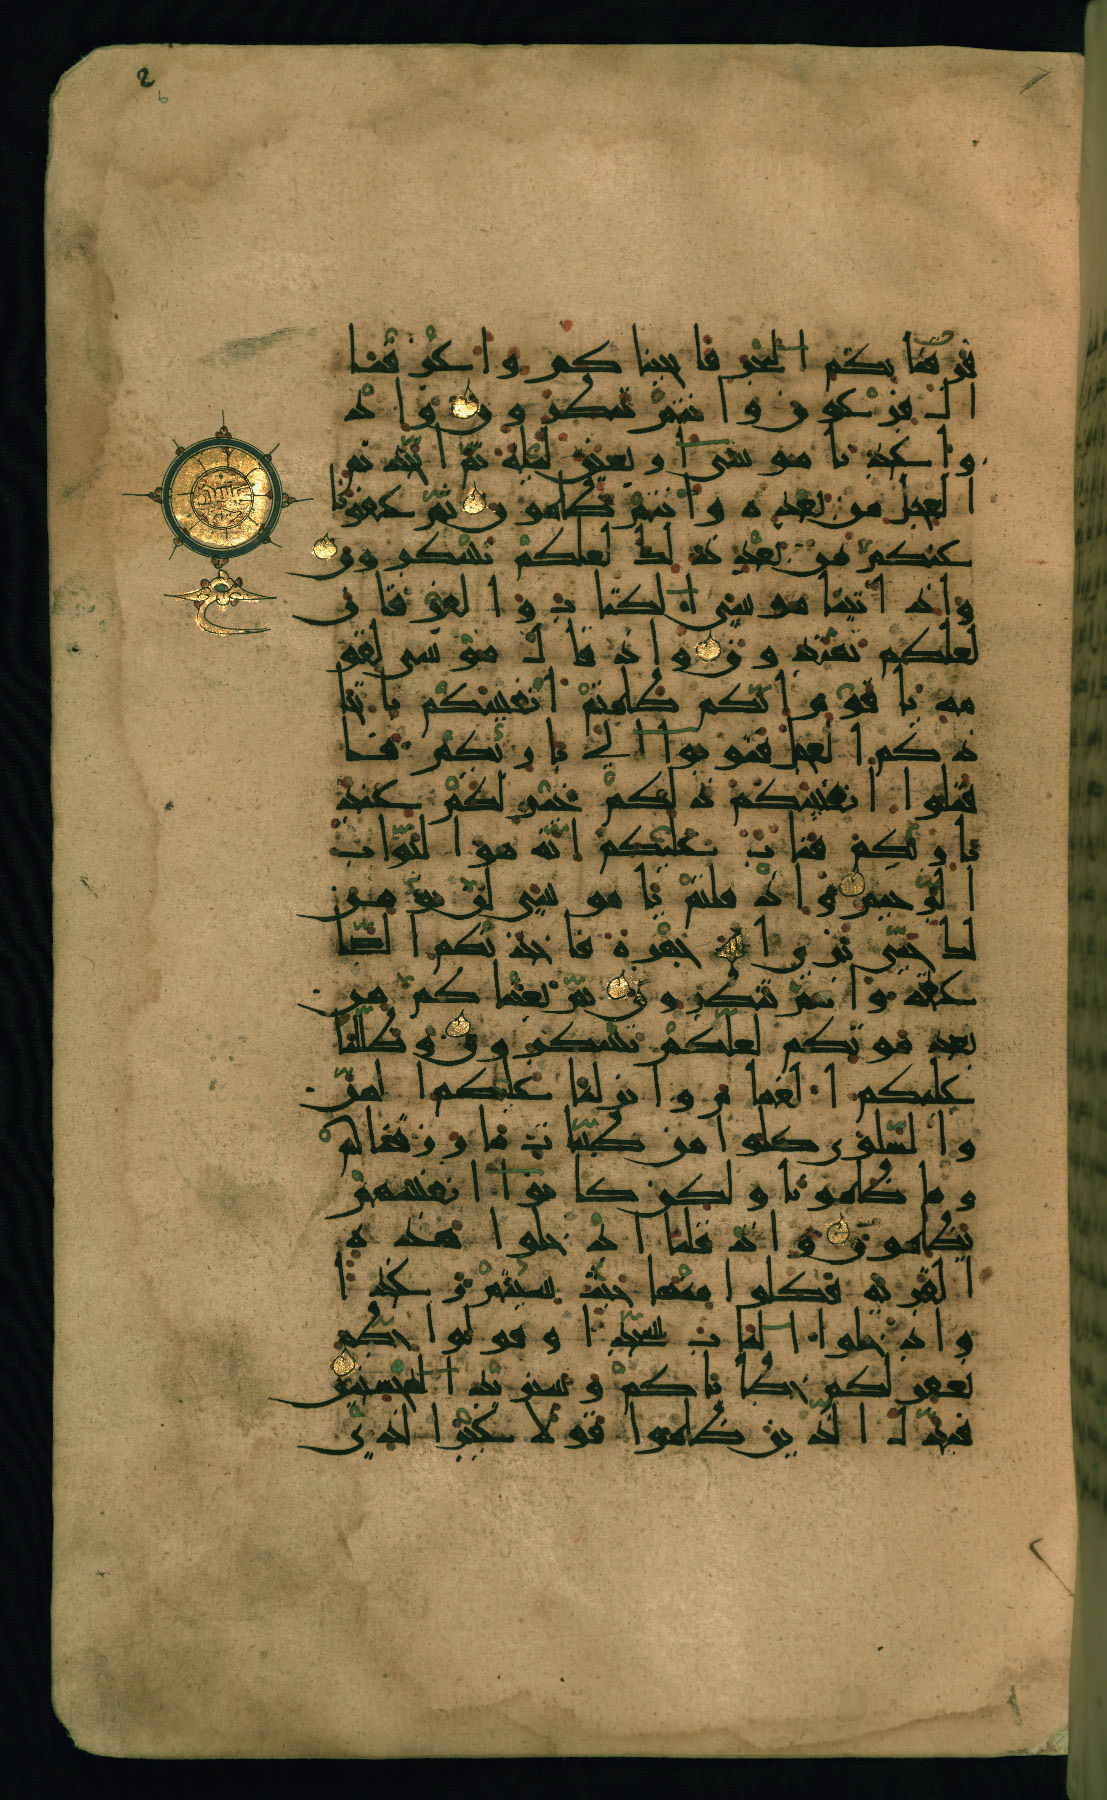 2
فرقنا بكم البحر فانجيناكم واغرقنا
ال فرعون وانتم تنظرون واذ
واعدنا موسى اربعين ليلة ثم اتخذتم
العجل من بعده وانتم ظالمون ثم عفونا
عنكم من بعد ذلك لعلكم تشكرون
واذ اتينا موسى الكتاب والفرقان
لعلكم تهتدون واذ قال موسى لقو
مه يا قوم انكم ظلمتم انفسكم باتخا
ذكم العجل فتوبوا الى بارئكم فا
قتلوا انفسكم ذلكم خير لكم عند
بارئكم فتاب عليكم انه هو التواب
الرحيم واذ قلتم يا موسى لن نؤمن
لك حتى نرى الله جهرة فاخذتكم الصا
عقة وانتم تنظرون ثم بعثناكم من
بعد موتكم لعلكم تشكرون وظللنا
عليكم الغمام وانزلنا عليكم المن
والسلوى كلوا من طيبات ما رزقناكم
وما ظلمونا ولكن كانوا انفسهم
يظلمون واذ قلنا ادخلوا هذه
القرية فكلوا منها حيث شئتم رغدا
وادخلوا الباب سجدا وقولوا حطة
نغفر لكم خطاياكم وسنزيد المحسنين
فبدل الذين ظلموا قولا غير الذي